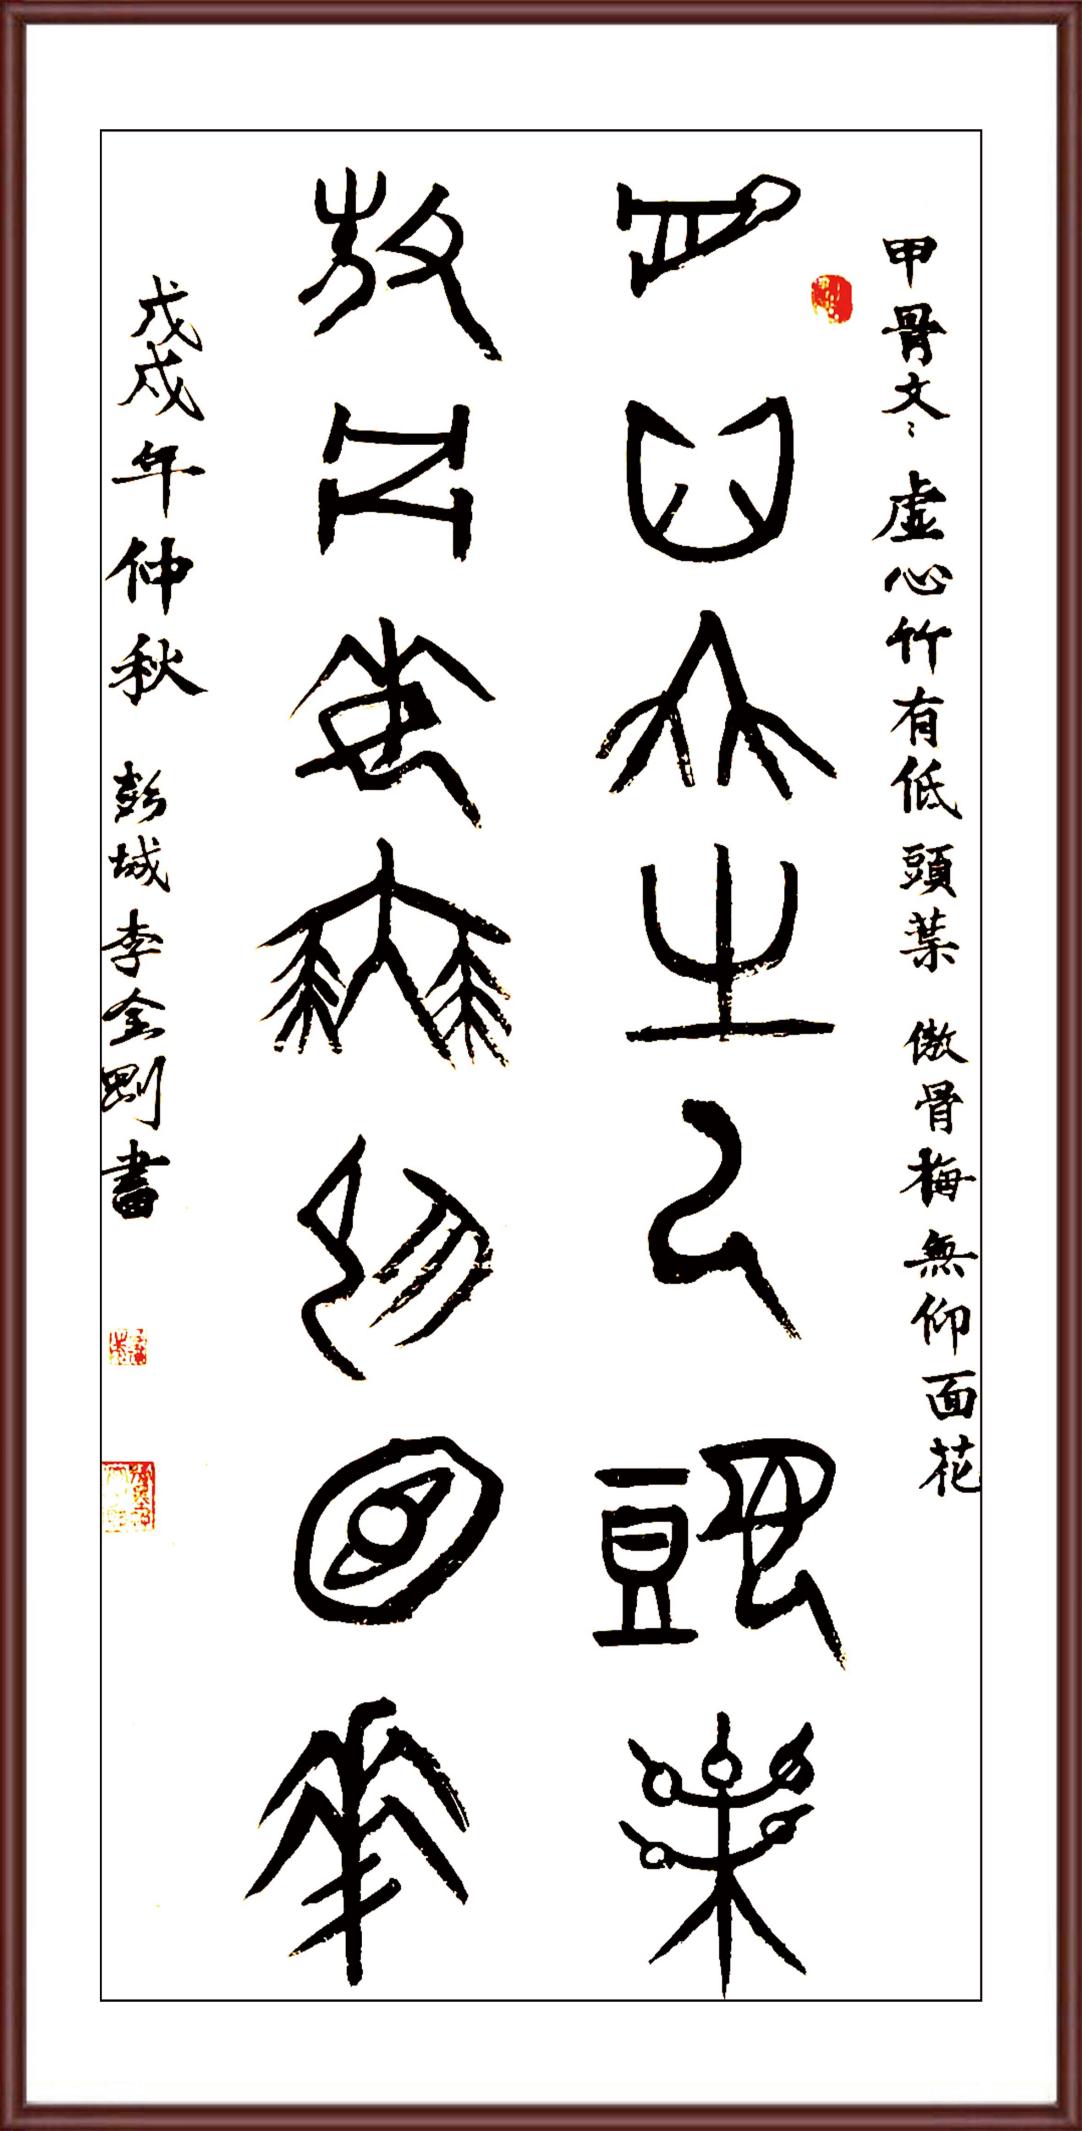 甲骨文：虚心竹有低頭葉 傲骨梅無仰面花
虚心竹有低頭葉
敖骨梅無仰面花
戊戌年仲秋 彭城李全剛書